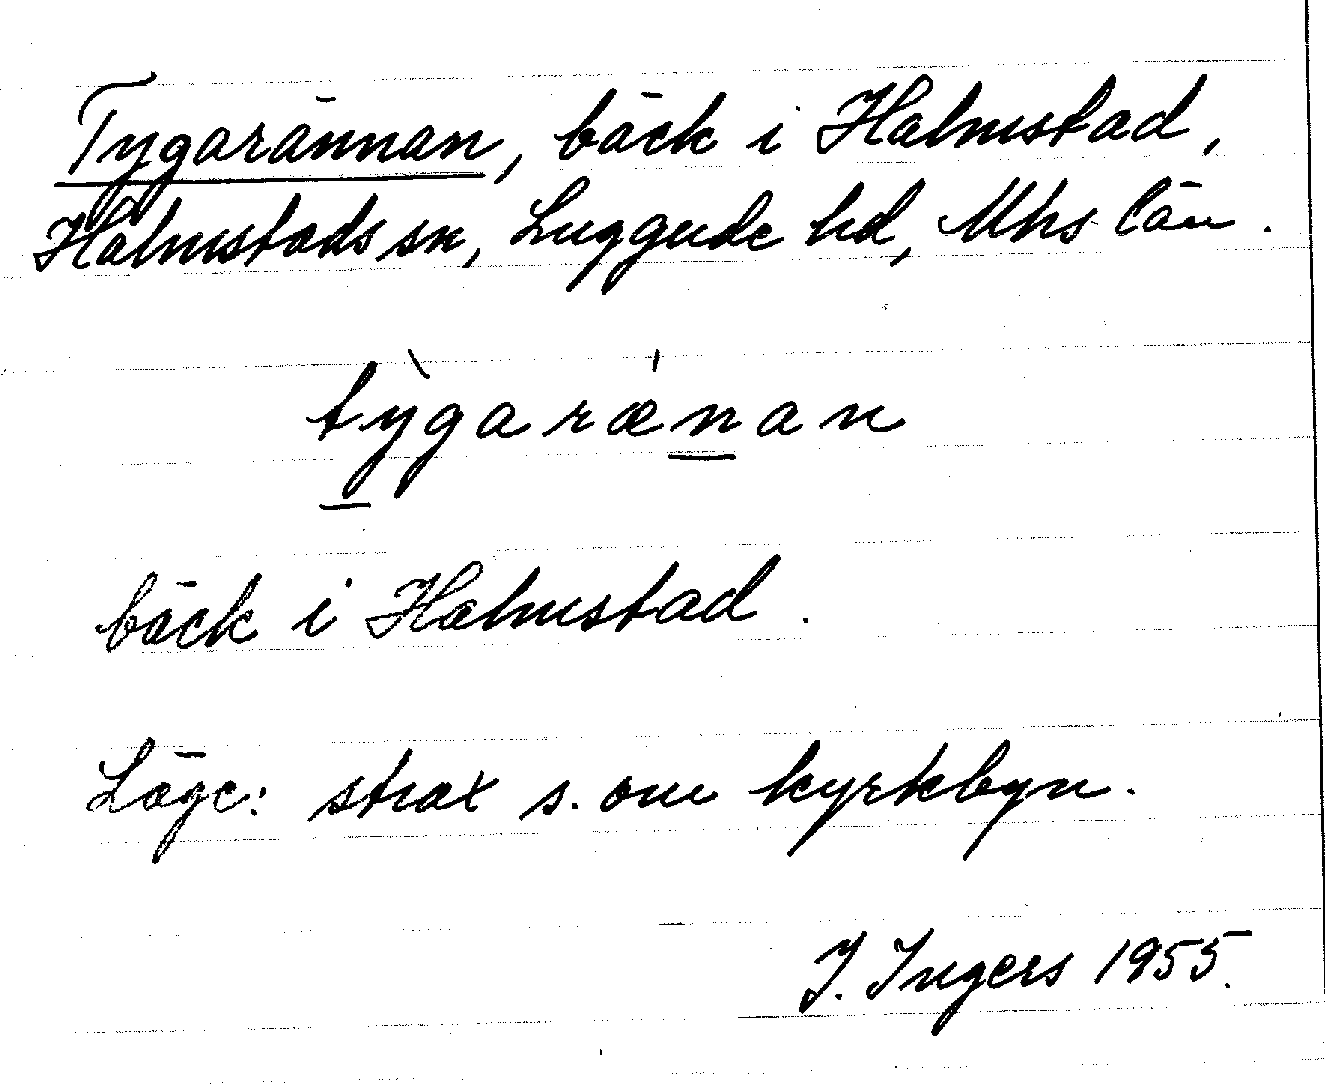 Tygarännan, bäck i Halmstad,
Halmstads sn, Luggude hd, Mhs län.
tỳgarænan
bäck i Halmstad.
Läge: strax s. om kyrkbyn.
I. Ingers 1955.